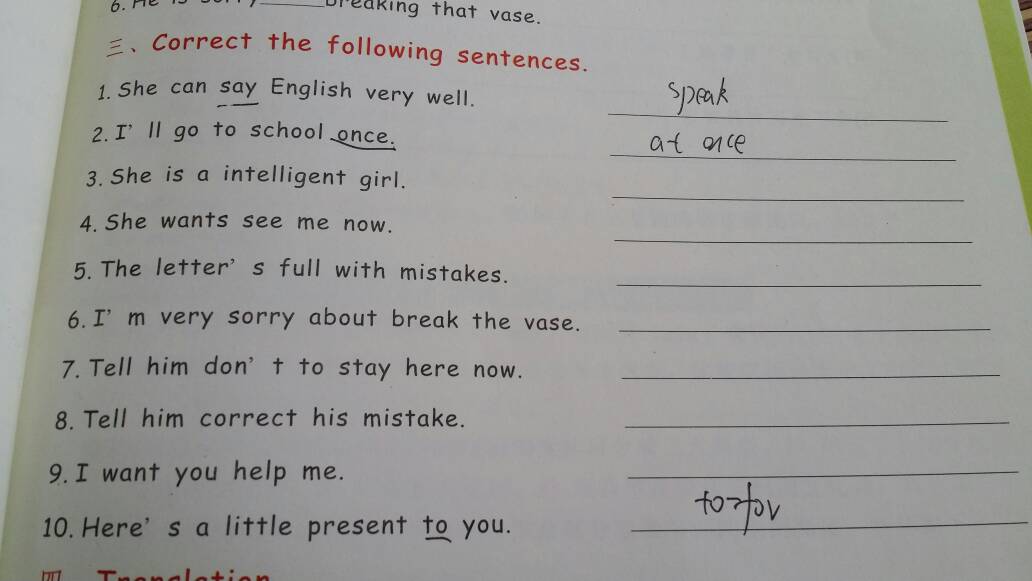 6. He is sorry ______ breaking that vase.
三、Correct the following sentences.
1. She can say English very well. speak
2. I' ll go to school once. at once
3. She is a intelligent girl.
4. She wants see me now.
5. The letter' s full with mistakes.
6. I' m very sorry about break the vase.
7. Tell him don' t to stay here now.
8. Tell him correct his mistake.
9. I want you help me.
10. Here' s a little present to you. to→for
四、Translation